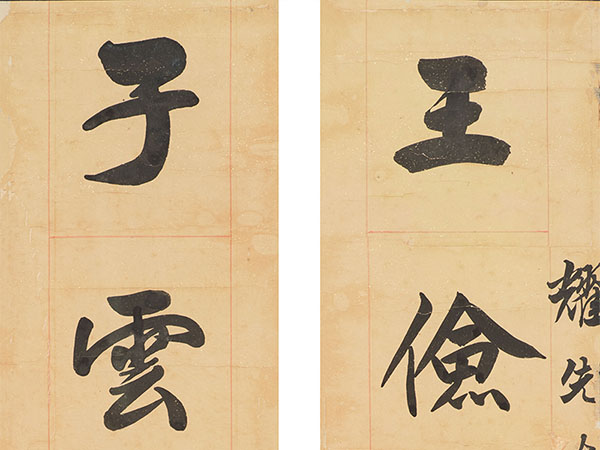 耀先
王儉
子雲